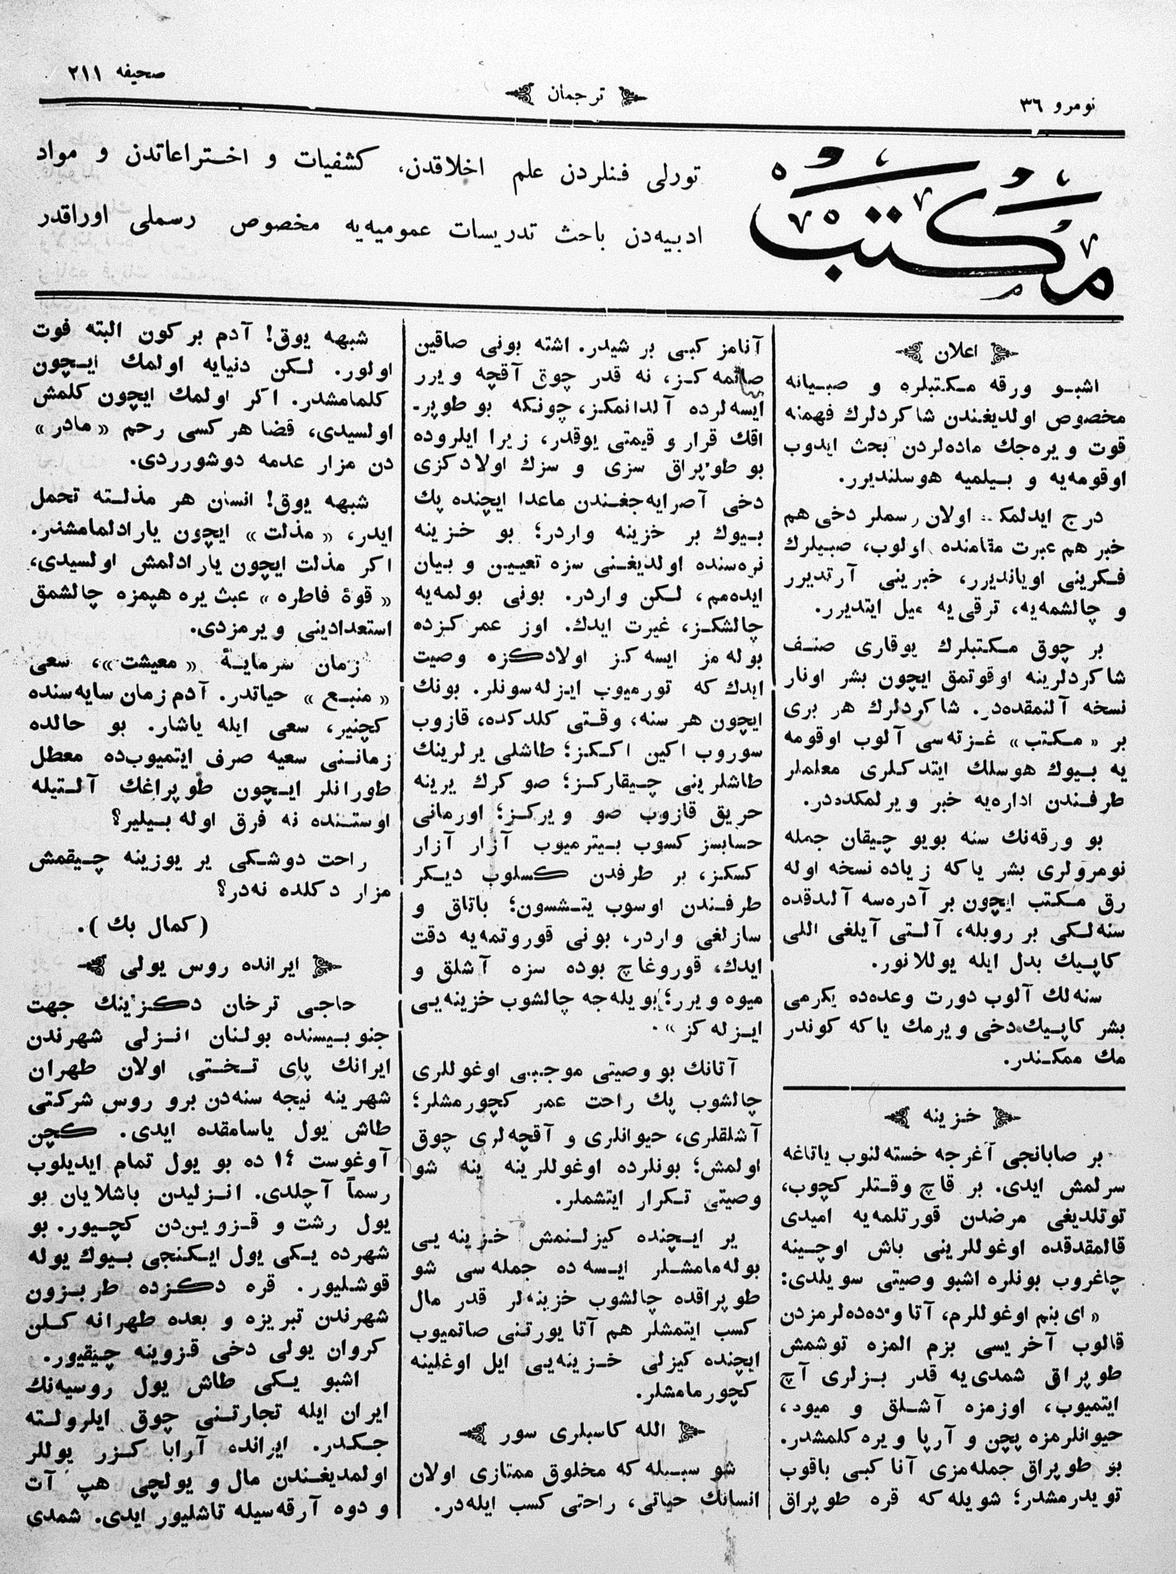 نومرو ٣٦
ترجمان
صحیفه ٢١١
مكتب
تورلی فنلردن علم اخلاقدن، كشفیات و اختراعاتدن و مواد
ادبیه‌دن باحث تدریسات عمومیه‌یه مخصوص رسملی اوراقدر
اعلان
اشبو ورقه مكتبلره و صبیانه
مخصوص اولدیغندن شاكردلرك فهمنه
قوت ویره‌جك ماده‌لردن بحث ایدوب
اوقومه‌یه و بیلمیه هوسلندیرر.
درج ایدلمكـ اولان رسملر دخی هم
خبر هم عبرت مقامنده اولوب، صبیلرك
فكرینی اویاندیرر، خبرینی آرتدیرر
و چالشمه‌یه، ترقی یه میل ایتدیرر.
بر چوق مكتبلرك یوقاری صنف
شاكردلرینه اوقوتمق ایچون بشر اونار
نسخه آلنمقده‌در. شاكردلرك هر بری
بر «مكتب» غزته‌سی آلوب اوقومه
یه بیوك هوسلك ایتدكلری معلملر
طرفندن اداره‌یه خبر ویرلمكده‌در.
بو ورقه‌نك سنه بویو چیقان جمله
نومرولری بشر یاكه زیاده نسخه اوله
رق مكتب ایچون بر آدره‌سه آلندقده
سنه‌لكی بر روبله، آلتی آیلغی اللی
كاپیك بدل ایله یوللانور.
سنه‌لك آلوب دورت وعده‌ده یكرمی
بشر كاپیك دخی ویرمك یاكه كوندر
مك ممكندر.
خزینه
بر صابانجی آغرجه خسته‌لنوب یاتاغه
سرلمش ایدی. بر قاچ وقتلر كچوب،
توتلدیغی مرضدن قورتلمه‌یه امیدی
قالمقدقده اوغوللرینی باش اوچینه
چاغروب بونلره اشبو وصیتی سویلدی:
«ای بنم اوغوللرم، آتا و ده‌ده‌لرمزدن
قالوب آخریسی بزم المزه توشمش
طوپراق شمدی‌یه قدر بزلری آچ
ایتمیوب، اوزمزه آشلق و میوه،
حیوانلرمزه پچن و آرپا ویره كلمشدر.
بو طوپراق جمله‌مزی آنا كبی باقوب
تویدرمشدر؛ شویله كه قره طوپراق
آنامز كبی بر شیدر. اشته بونی صاقین
صاتمه كز، نه قدر چوق آقچه ویرر
ایسه‌لرده آلدانمكز، چونكه بو طوپر-
اقك قرار و قیمتی یوقدر، زیرا ایلروده
بو طوپراق سزی و سزك اولادكزی
دخی آصرایه‌جغندن ماعدا ایچنده پك
بیوك بر خزینه واردر؛ بو خزینه
نره‌سنده اولدیغنی سزه تعیین و بیان
ایده‌مم، لكن واردر. بونی بولمه‌یه
چالشكز، غیرت ایدك. اوز عمركزده
بوله مز ایسه كز اولادكزه وصیت
ایدك كه تورمیوب ایزله‌سونلر. بونك
ایچون هر سنه، وقتی كلدكده، قازوب
سوروب اكین اككز؛ طاشلی یرلرینك
طاشلرینی چیقاركز؛ صو كرك یرینه
حریق قازوب صو ویركز؛ اورمانی
حسابسز كسوب بیترمیوب آزار آزار
كسكز، بر طرفدن كسلوب دیكر
طرفندن اوسوب یتشسون؛ باتاق و
سازلغی واردر، بونی قوروتمه‌یه دقت
ایدك، قوروغاچ بوده سزه آشلق و
میوه ویرر؛ بویله‌جه چالشوب خزینه‌یی
ایزله كز».
آتانك بو وصیتی موجبی اوغوللری
چالشوب پك راحت عمر كچورمشلر؛
آشلقلری، حیوانلری و آقچه‌لری چوق
اولمش؛ بونلرده اوغوللرینه ینه شو
وصیتی تكرار ایتشملر.
یر ایچنده كیزلنمش خزینه یی
بوله‌مامشلر ایسه ده جمله سی شو
طوپراقده چالشوب خزینه‌لر قدر مال
كسب ایتمشلر هم آتا یورتنی صاتمیوب
ایچنده كیزلی خزینه‌یی ایل اوغلینه
كچورمامشلر.
الله كاسبلری سور
شو سببله كه مخلوق ممتازی اولان
انسانك حیاتی، راحتی كسب ایله‌در.
شبهه یوق! آدم بر كون البته فوت
اولور. لكن دنیایه اولمك ایچون
كلمامشدر. اكر اولمك ایچون كلمش
اولسیدی، قضا هر كسی رحم «مادر»
دن مزار عدمه دوشورردی.
شبهه یوق! انسان هر مذلته تحمل
ایدر، «مذلت» ایچون یارادلمامشدر.
اكر مذلت ایچون یارادلمش اولسیدی،
«قوۀ فاطره» عبث یره هپمزه چالشمق
استعدادینی ویرمزدی.
زمان سرمایۀ «معیشت»، سعی
«منبع» حیاتدر. آدم زمان سایه‌سنده
كچنیر، سعی ایله یاشار. بو حالده
زماننی سعیه صرف ایتمیوب‌ده معطل
طورانلر ایچون طوپراغك آلتیله
اوستنده نه فرق اوله بیلیر؟
راحت دوشكی یر یوزینه چیقمش
مزار دكلده نه‌در؟
(كمال بك).
ایرانده روس یولی
حاجی ترخان دكزینك جهت
جنوبیسنده بولنان انزلی شهرندن
ایرانك پای تختی اولان طهران
شهرینه نیجه سنه‌دن برو روس شركتی
طاش یول یاسامقده ایدی. كچن
آوغوست ١٤ ده بو یول تمام ایدیلوب
رسماً آچلدی. انزلیدن باشلایان بو
یول رشت و قزوین‌دن كچیور. بو
شهرده یكی یول ایكنجی بیوك یوله
قوشلیور. قره دكزده طربزون
شهرندن تبریزه و بعده طهرانه كلن
كروان یولی دخی قزوینه چیقیور.
اشبو یكی طاش یول روسیه‌نك
ایران ایله تجارتنی چوق ایلرولته
جكدر. ایرانده آرابا كزر یوللر
اولمدیغندن مال و یولچی هپ آت
و دوه آرقه‌سیله تاشلیور ایدی. شمدی